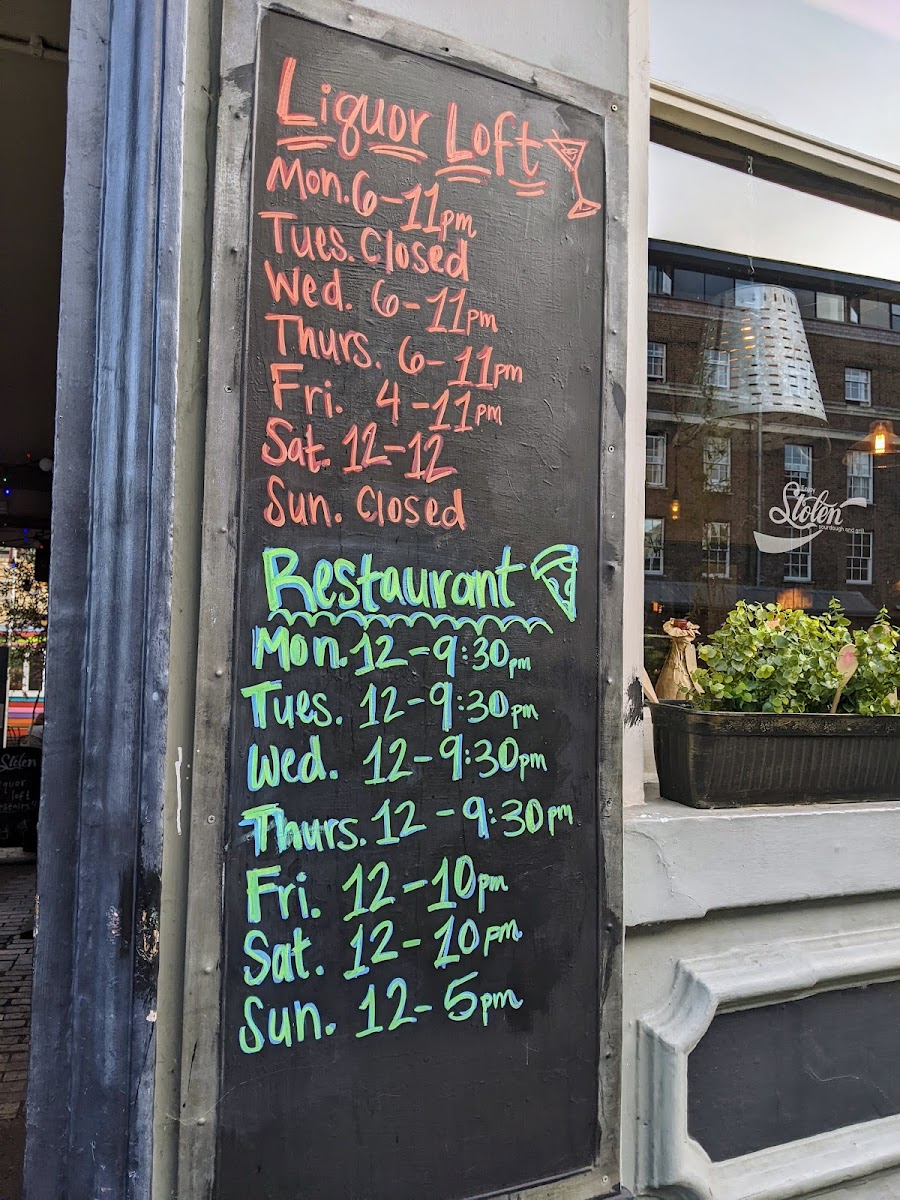 Liquor Loft
Mon. 6-11pm
Tues. Closed
Wed. 6-11pm
Thurs. 6-11pm
Fri. 4-11pm
Sat. 12-12
Sun. Closed
Restaurant
Mon. 12-9:30pm
Tues. 12-9:30pm
Wed. 12-9:30pm
Thurs. 12-9:30pm
Fri. 12-10pm
Sat. 12-10pm
Sun. 12-5pm
Stolen
sourdough and grill
Stolen